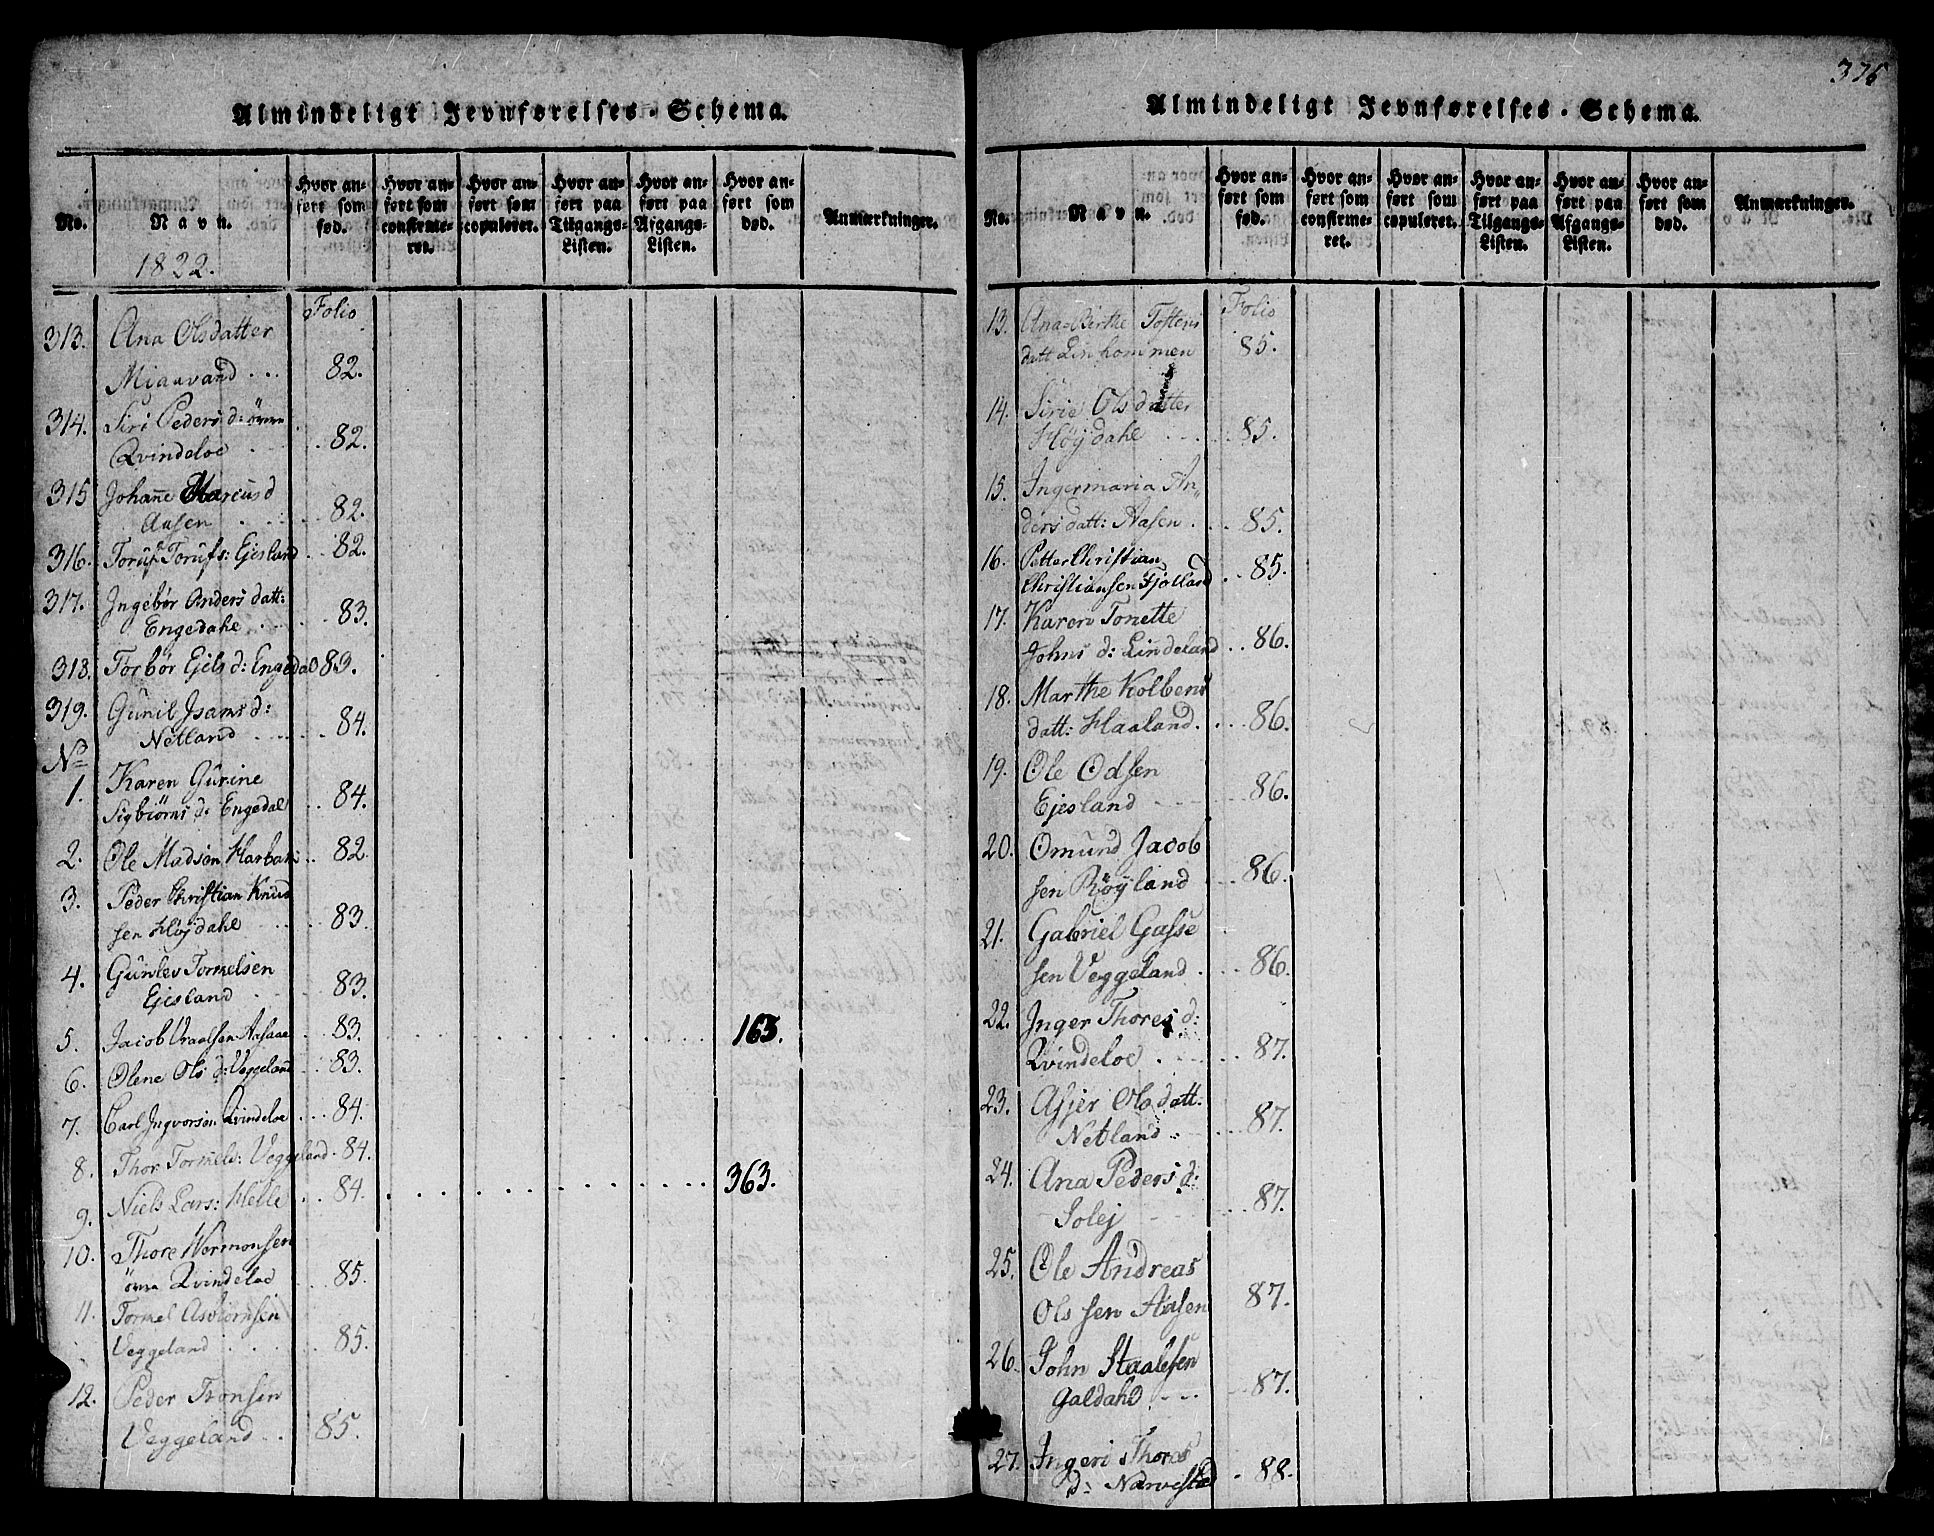 Almindeligt Jevnførelses-Schema.
No.
Navn.
1822.
Hvor anført som fød.
Hvor anført som confirmeret.
Hvor anført som copuleret.
Hvor anført paa Tilgangs-Listen.
Hvor anført paa Afgangs-Listen.
Hvor anført som død.
Anmærkninger.
Folio
313. Ana Olsdatter
Miauvand ... 82.
314. Siri Peders d: öwre
Qvindeloe . . . 82.
315 Johanne Marcus d
Aasen . . . 82.
316. Toruf Torufs: Ejesland . . 82.
317. Ingebör Anders datt:
Engedahe . . . 83.
318. Torbör Ejels d: Engedal 83.
319. Gunil Isams d:
Netland . . . 84.
No
1. Karen Gurine
Sigbiörns d: Engedal . . 84.
2. Ole Madsen Harbak . . 82
3. Peder Christian Knud
sen Höjdahe . . . 83.
4. Gunlev Tormelsen
Ejesland . . . 83.
5. Jacob Vraalsen Aasaae . . 83. . . . 163.
6. Olene Ols d: Veggeland . . 83.
7. Carl Ingvorsen Qvindeloe . . . 84.
8. Thor Tormels: Veggeland . 84.
9. Niels Lars: Helle . . 84. . . . 363.
10. Thore Wormonsen
öwre Qvindeloe . . . 85.
11. Tormel Asbiörnsen
Veggeland . . . 85.
12. Peder Tronsen
Veggeland . . 85.
376
Almindeligt Jevnførelses-Schema.
No.
Navn.
Hvor anført som fød.
Hvor anført som confirmeret.
Hvor anført som copuleret.
Hvor anført paa Tilgangs-Listen.
Hvor anført paa Afgangs-Listen.
Hvor anført som død.
Anmærkninger.
Folio
13. Ana Birthe Tostens
datt Linkommen 85.
14. Sirie Olsdatter
Höjdahe . . . 85.
15. Ingermaria An"
ders datt: Aasen . . . 85.
16. Petter Christian
Christiansen Fjotland . . 85.
17. Karen Tonette
Johns d: Lindeland . . 86.
18. Marthe Kolbens
datt: Haaland. . . . 86.
19. Ole Odsen
Ejesland . . . 86.
20. Omund Jacob
sen Röyland . . . 86.
21. Gabriel Gasse
sen Veggeland . . . 86.
22. Inger Thores d:
Qvindeloe . . . 87.
23. Asjer Olsdatt:
Netland . . . 87.
24. Ana Peders d:
Solej . . . 87.
25. Ole Andreas
Olssen Aasen 87.
26. John Staalesen
Galdahl . . . 87.
27. Ingeri Thores
d: Narvestad . 88.